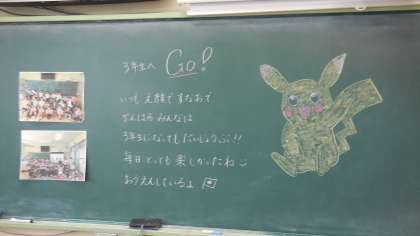 3年生へ GO!
いつも 元顔で すなおで
がんばる みんなは
3年生になっても だいじょうぶ!!
毎日 とっても 楽しかったね
おうえんしているよ